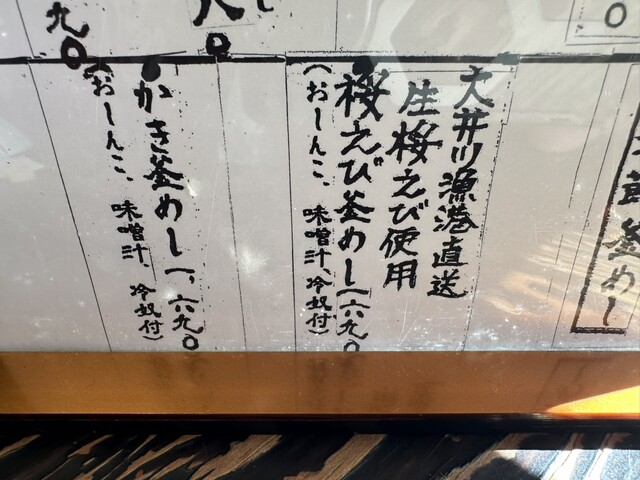 釜めし
大井川漁港直送
生桜えび使用
桜えび釜めし一、六九〇
（おしんこ、味噌汁、冷奴付）
かき釜めし一、六九〇
（おしんこ、味噌汁、冷奴付）
九〇